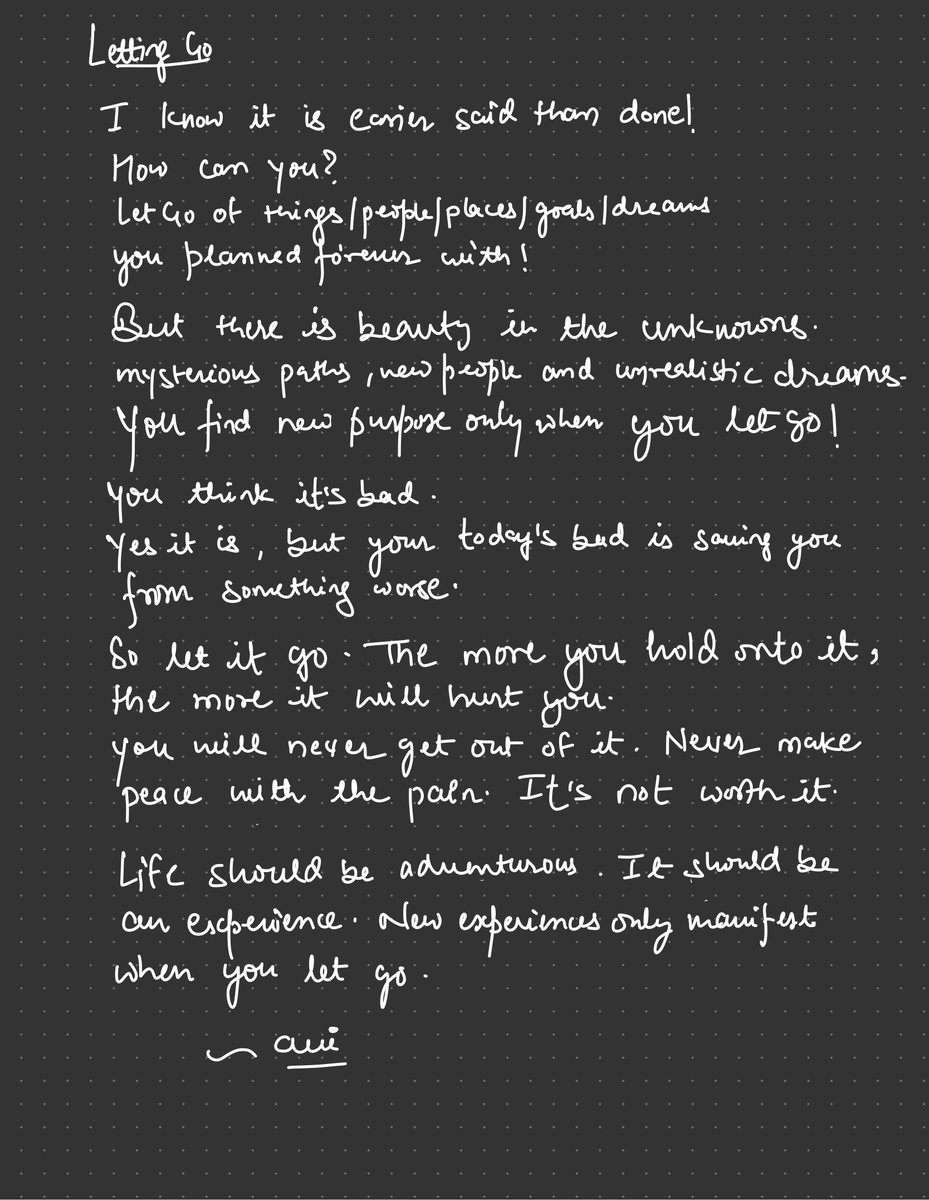 Letting Go
I know it is easier said than done!
How can you?
Let Go of things/people/places/goals/dreams
you planned forever with!
But there is beauty in the unknowns.
mysterious paths, new people and unrealistic dreams.
You find new purpose only when you let go!
you think it's bad.
Yes it is, but your today's bad is saving you
from something worse.
So let it go. The more you hold onto it,
the more it will hurt you.
you will never get out of it. Never make
peace with the pain. It's not worth it.
Life should be adventurous. It should be
an experience. New experiences only manifest
when you let go.
~ avi